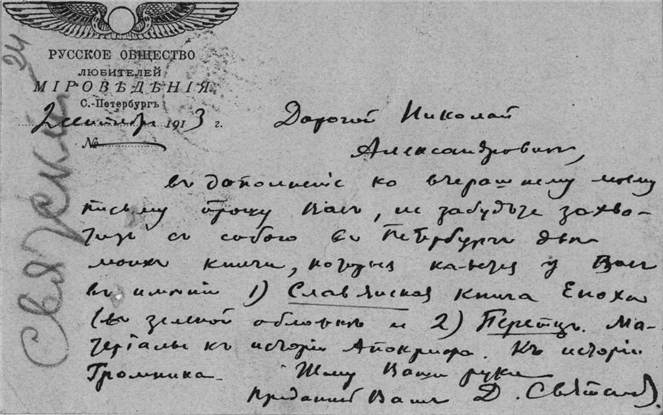 24
РУССКОЕ ОБЩЕСТВО
ЛЮБИТЕЛЕЙ
МІРОВѢДѢНІЯ.
С.-Петербургъ
2 сентября 1913 г.
№
Святский
Дорогой Николай
Александровичъ,
въ дополненіе ко вчерашнему моему
письму прошу Васъ, не забудьте захва-
тить съ собою въ Петербургъ двѣ
моихъ книги, которыя кажется у Васъ
въ имѣніи 1) Славянская книга Еноха
(въ зеленой обложкѣ и 2) Перетцъ. Ма-
теріалы къ исторіи Апокрифа. Къ исторіи
Громника. Жму Вашу руку
Преданный Вамъ Д. Святскій